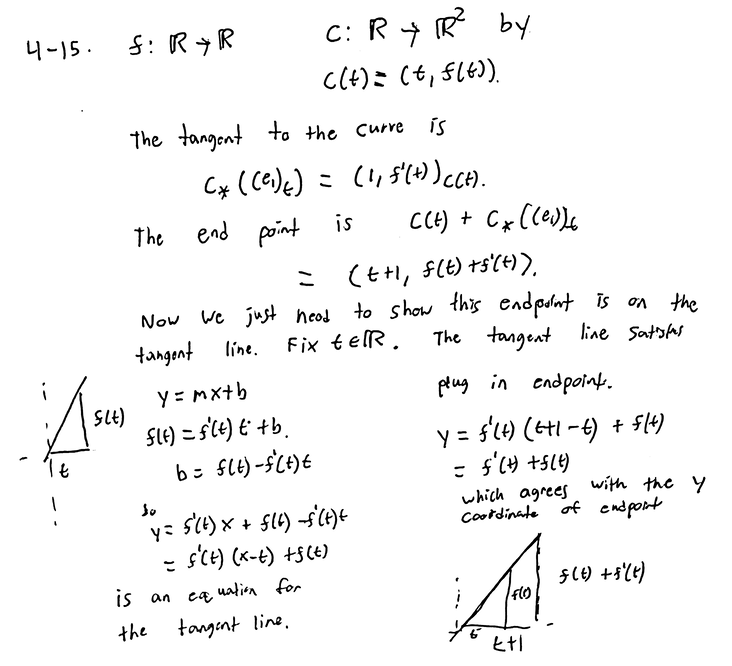 4-15. f: ℝ → ℝ C: ℝ → ℝ² by
C(t) = (t, f(t)).
The tangent to the curve is
C_*((e₁)_t) = (1, f'(t))_{C(t)}.
The end point is C(t) + C_*((e₁)_t)
= (t+1, f(t) + f'(t)).
Now we just need to show this endpoint is on the
tangent line. Fix t∈ℝ. The tangent line satisfies
y = mx+b
f(t) = f'(t) t + b.
b = f(t) - f'(t)t
so
y = f'(t) x + f(t) - f'(t)t
= f'(t) (x-t) + f(t)
is an equation for
the tangent line.
f(t)
t
plug in endpoint.
y = f'(t) (t+1-t) + f(t)
= f'(t) + f(t)
which agrees with the y
coordinate of endpoint
f(t)
f(t) + f'(t)
t
t+1